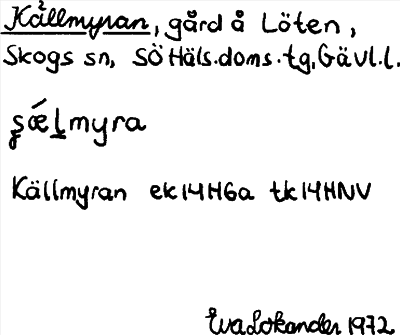 Källmyran, gård å Löten,
Skogs sn, SÖ Häls.doms.tg. Gävl.l.
ʂǽl̠myra
Källmyran ek 14H6a tk 14HNV
Eva Lokander 1972